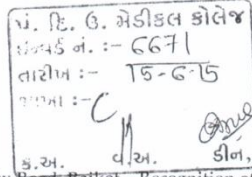 પં. દિ. ઉ. મેડીકલ કોલેજ
ઇન્વર્ડ નં. :- 6671
તારીખ :- 15-6-15
શાખા :- C
ક.અ. વ.અ. ડીન,